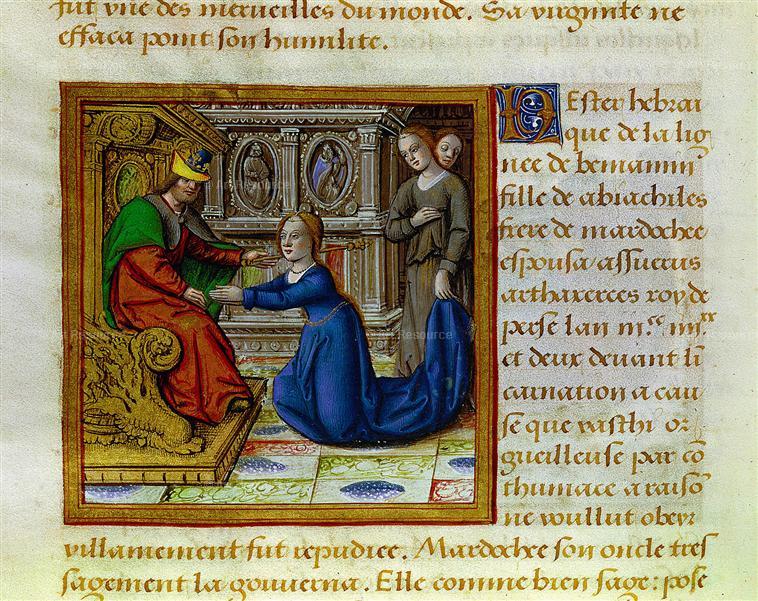 fut une des merueilles du monde. Sa virginite ne
effaca point son humilite.
Ester hebrai
que de la lig
nee de beniamin
fille de abiachiles
frere de mardochee
espousa assuerus
artharerces roy de
perse lan m.cc iiii.xx
et deux deuant li
carnation a cau
se que vasthi or
gueilleuse par cõ
thumace a raisõ
ne voullut obeyr
villainement fut repudiee. Mardochee son oncle tres
sagement la gouuerna. Elle comme bien sage: pose